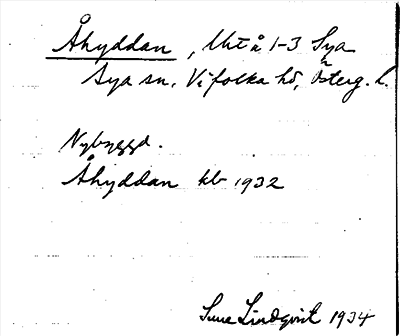 Åhyddan, Uht å 1-3 Sya
Sya sn, Vifolka hd, Österg. l.
Nybyggd.
Åhyddan kb 1932
Sune Lindqvist 1934